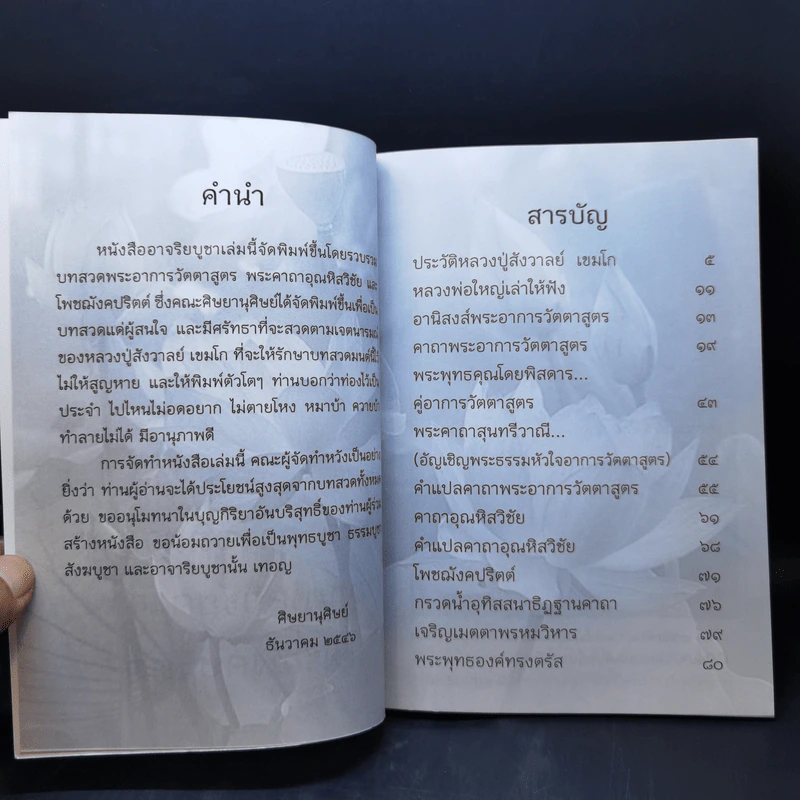 คำนำ
หนังสืออาจริยบูชาเล่มนี้จัดพิมพ์ขึ้นโดยรวบรวม
บทสวดพระอาการวัตตาสูตร พระคาถาอุณหิสวิชัย และ
โพชฌังคปริตต์ ซึ่งคณะศิษยานุศิษย์ได้จัดพิมพ์ขึ้นเพื่อเป็น
บทสวดแด่ผู้สนใจ และมีศรัทธาที่จะสวดตามเจตนารมณ์
ของหลวงปู่สังวาลย์ เขมโก ที่จะให้รักษาบทสวดมนต์นี้ไว้
ไม่ให้สูญหาย และให้พิมพ์ตัวโตๆ ท่านบอกว่าท่องไว้เป็น
ประจำ ไปไหนไม่อดอยาก ไม่ตายโหง หมาบ้า ควายบ้า
ทำลายไม่ได้ มีอานุภาพดี
การจัดทำหนังสือเล่มนี้ คณะผู้จัดทำหวังเป็นอย่าง
ยิ่งว่า ท่านผู้อ่านจะได้ประโยชน์สูงสุดจากบทสวดทั้งหมด
ด้วย ขออนุโมทนาในบุญกิริยาอันบริสุทธิ์ของท่านผู้ร่วม
สร้างหนังสือ ขอน้อมถวายเพื่อเป็นพุทธบูชา ธรรมบูชา
สังฆบูชา และอาจาริยบูชานั้น เทอญ
ศิษยานุศิษย์
ธันวาคม ๒๕๔๖
สารบัญ
ประวัติหลวงปู่สังวาลย์ เขมโก ๕
หลวงพ่อใหญ่เล่าให้ฟัง ๑๑
อานิสงส์พระอาการวัตตาสูตร ๑๓
คาถาพระอาการวัตตาสูตร ๑๙
พระพุทธคุณโดยพิสดาร...
คู่อาการวัตตาสูตร ๔๓
พระคาถาสุนทรีวาณี...
(อัญเชิญพระธรรมหัวใจอาการวัตตาสูตร) ๕๔
คำแปลคาถาพระอาการวัตตาสูตร ๕๕
คาถาอุณหิสวิชัย ๖๑
คำแปลคาถาอุณหิสวิชัย ๖๘
โพชฌังคปริตต์ ๗๑
กรวดน้ำอุทิสสนาธิฏฐานคาถา ๗๖
เจริญเมตตาพรหมวิหาร ๗๙
พระพุทธองค์ทรงตรัส ๘๐